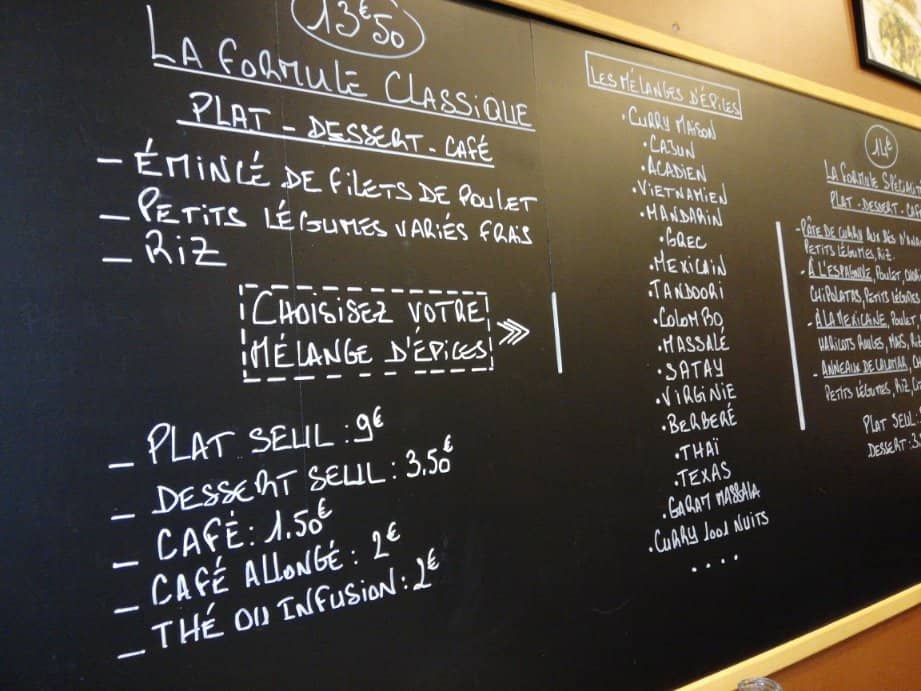 13€50
LA FORMULE CLASSIQUE
PLAT - DESSERT - CAFÉ
- ÉMINCÉ DE FILETS DE POULET
- PETITS LÉGUMES VARIÉS FRAIS
- RIZ
CHOISISEZ VOTRE
MÉLANGE D'ÉPICES
- PLAT SEUL : 9€
- DESSERT SEUL : 3.50€
- CAFÉ : 1.50€
- CAFÉ ALLONGÉ : 2€
- THÉ OU INFUSION : 2€
LES MÉLANGES D'ÉPICES
• CURRY MAISON
• CAJUN
• ACADIEN
• VIETNAMIEN
• MANDARIN
• GREC
• MEXICAIN
• TANDOORI
• COLOMBO
• MASSALÉ
• SATAY
• VIRGINIE
• BERBERÉ
• THAÏ
• TEXAS
• GARAM MASSALA
• CURRY 1001 NUITS
....
14€
LA FORMULE
PLAT - DESSERT -
- PÂTE DE CURRY AUX DÉS
PETITS LÉGUMES, RIZ.
- À L'ESPAGNOLE, POULET,
CHIPOLATAS, PETITS LÉGUMES
- À LA MEXICAINE, POULET,
HARICOTS ROUGES, MAÏS, RIZ
- ANNEAUX DE CALAMAR,
PETITS LÉGUMES, RIZ,
PLAT SEUL :
DESSERT :